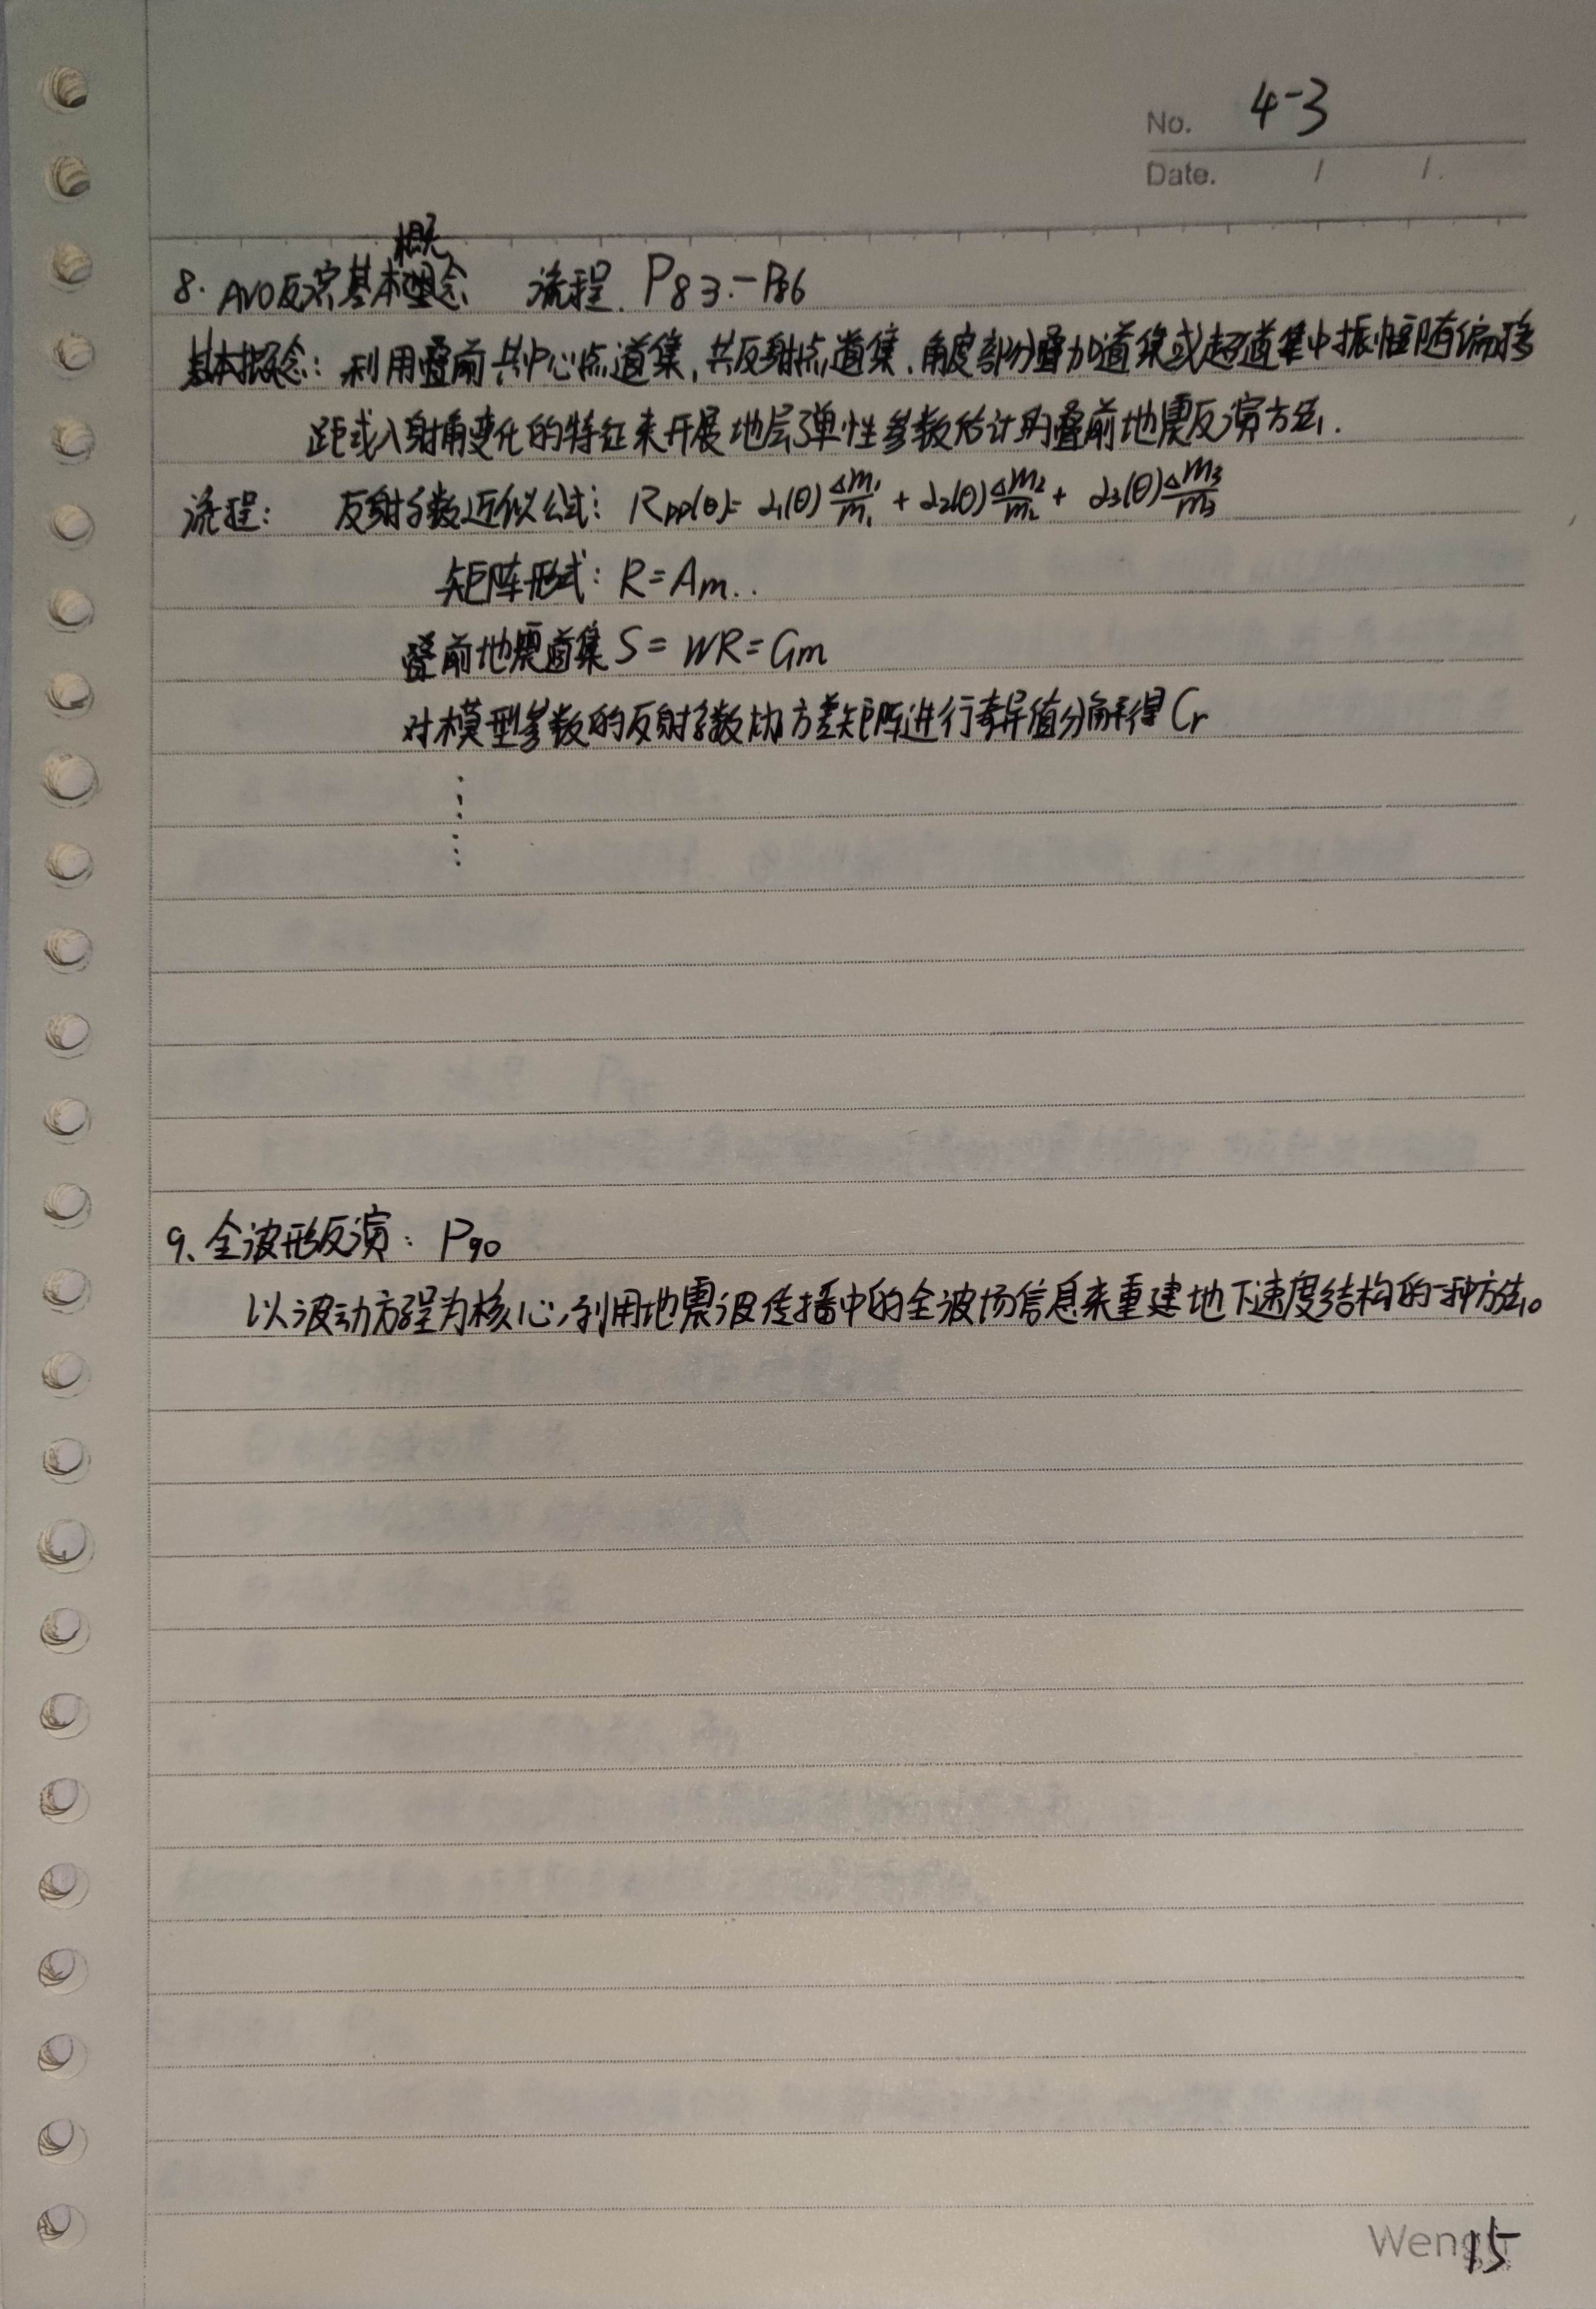 No. 4-3
Date. / /.
8. AVO反演基本概念 流程. P83.-P86
基本概念: 利用叠前共中心点道集, 共反射点道集, 角度部分叠加道集或超道集中振幅随偏移
距或入射角变化的特征来开展地层弹性参数估计的叠前地震反演方法.
流程: 反射系数近似公式: Rpp(θ)= α₁(θ) Δm₁/m₁ + α₂(θ) Δm₂/m₂ + α₃(θ) Δm₃/m₃
矩阵形式: R=Am..
叠前地震道集 S = WR = Gm
对模型参数的反射系数协方差矩阵进行奇异值分解得 Cr
9. 全波形反演: P90
以波动方程为核心, 利用地震波传播中的全波场信息来重建地下速度结构的一种方法。
15